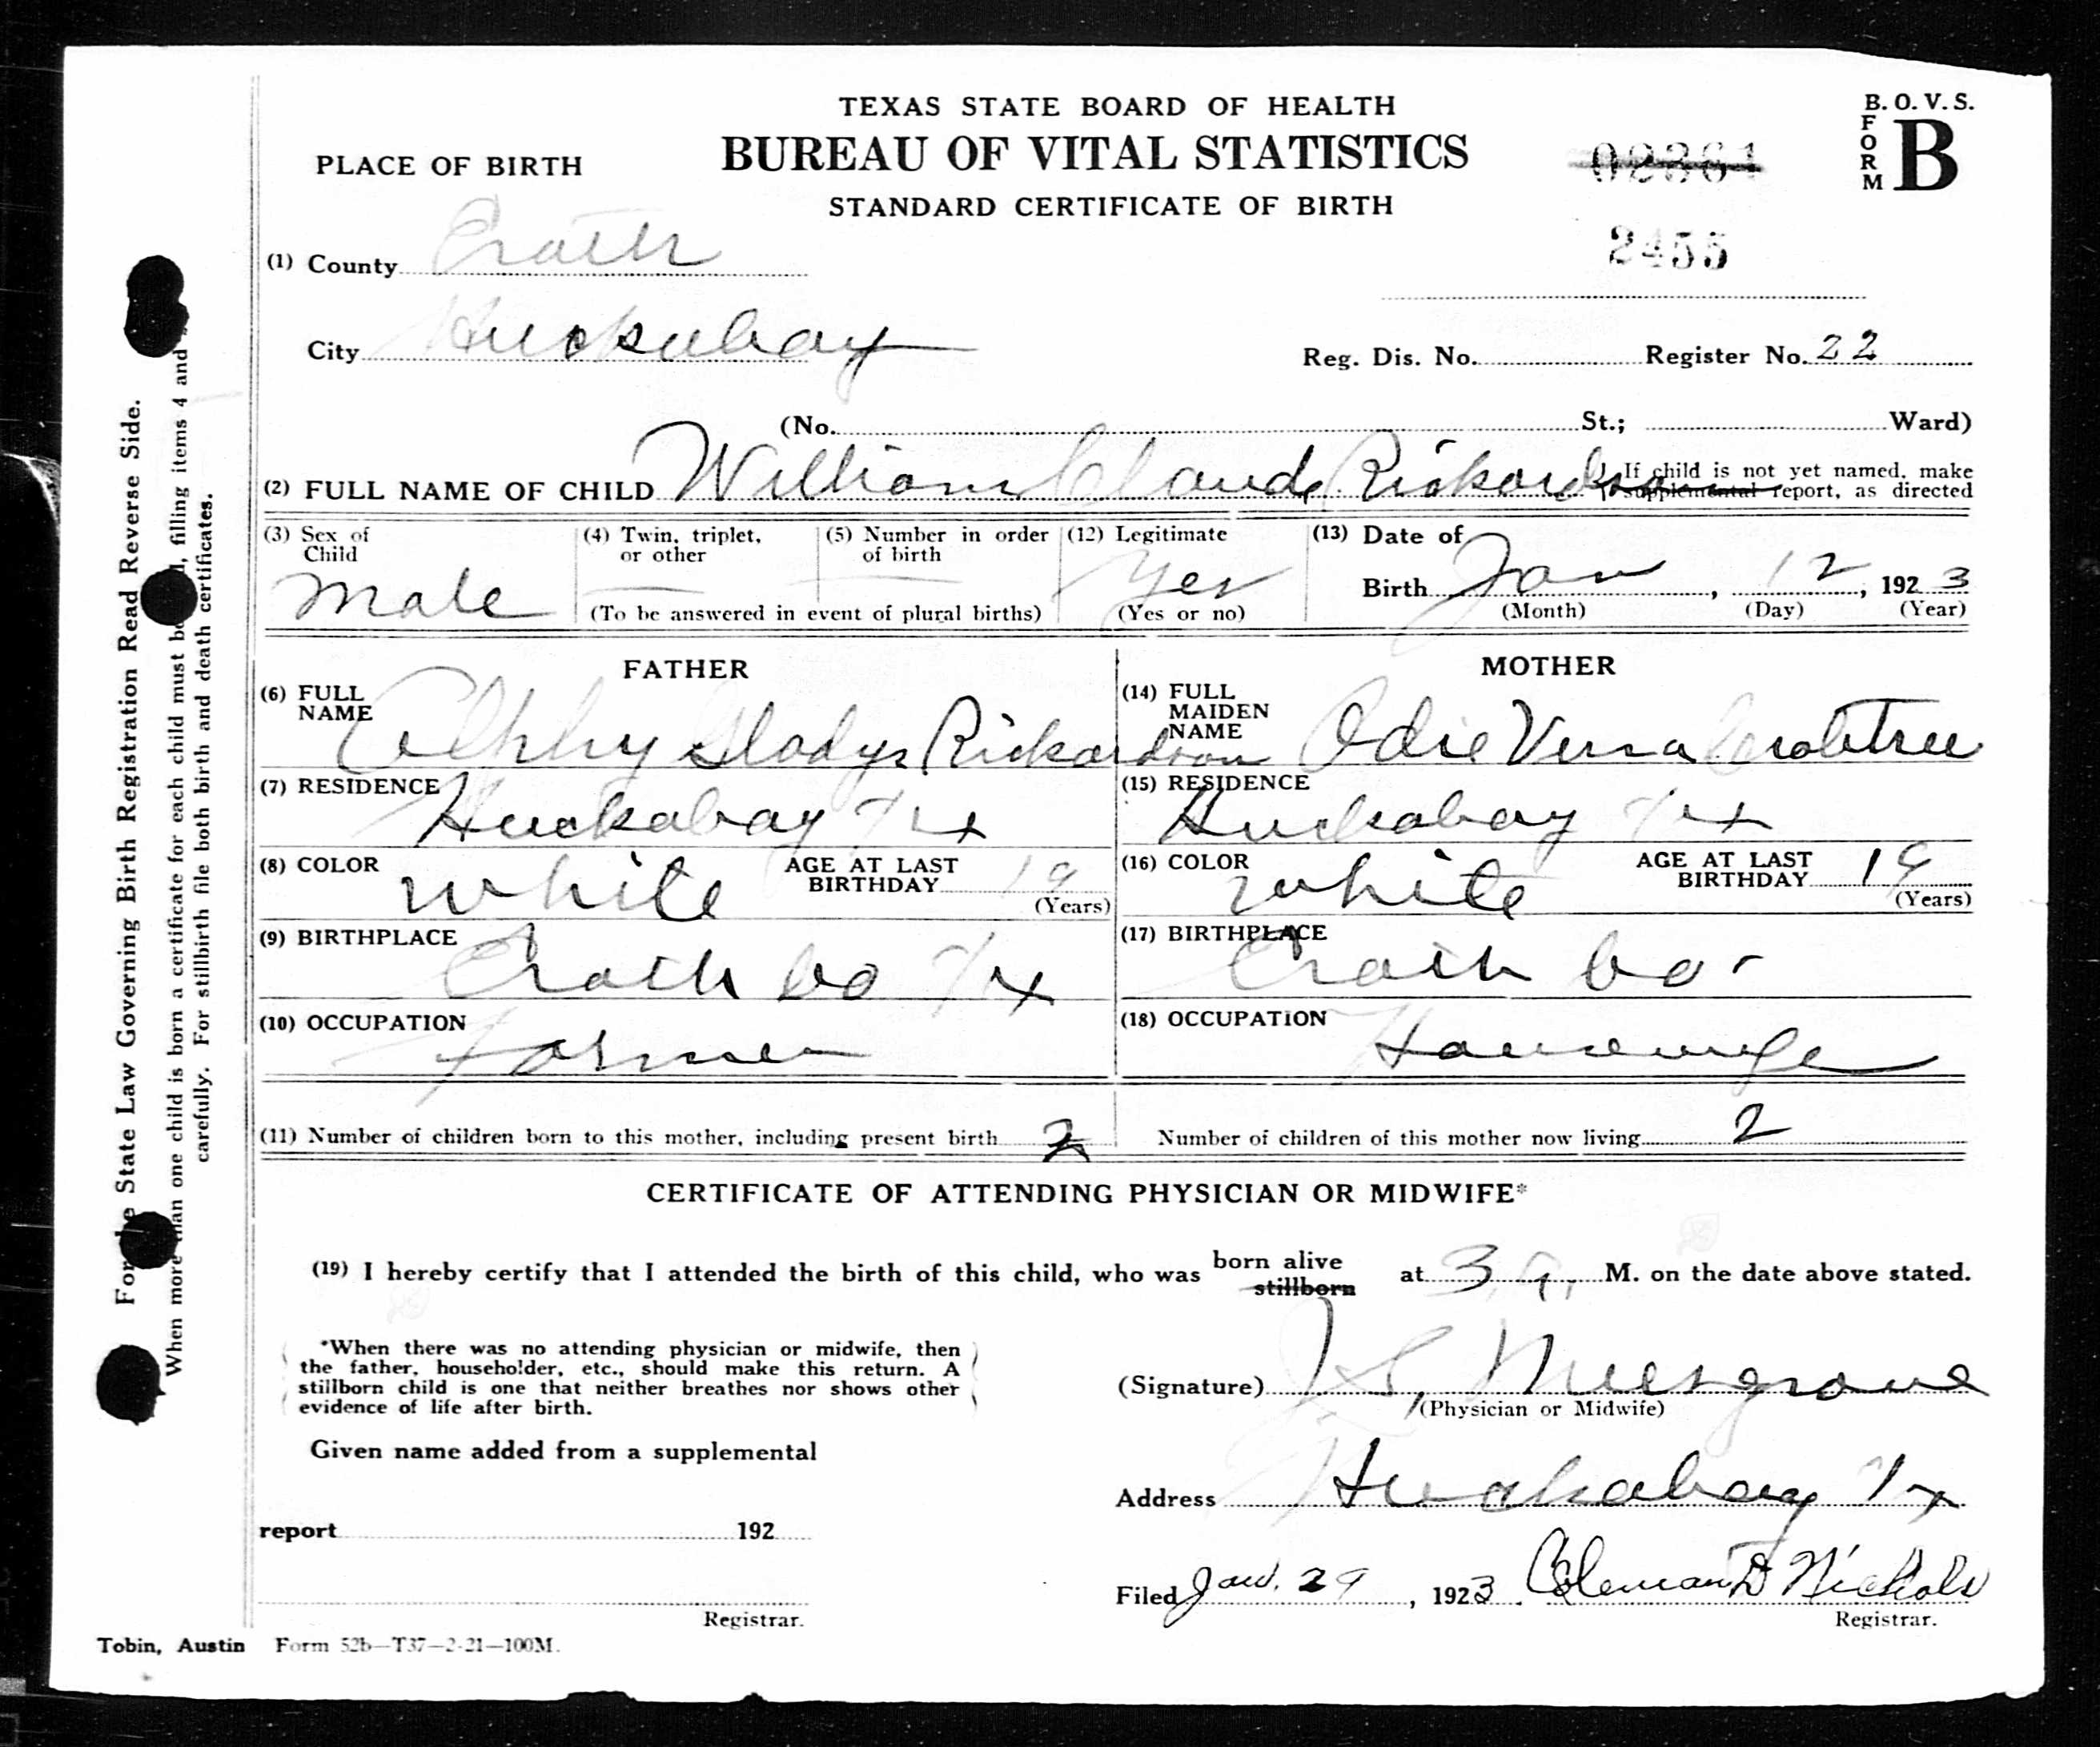 TEXAS STATE BOARD OF HEALTH
BUREAU OF VITAL STATISTICS
STANDARD CERTIFICATE OF BIRTH
B. O. V. S.
FORM B
02361
2455
PLACE OF BIRTH
(1) County Erath
City Huckabay
Reg. Dis. No. Register No. 22
(No. St.; Ward)
(2) FULL NAME OF CHILD William Claude Rickardson
If child is not yet named, make
supplemental report, as directed
(3) Sex of Child Male
(4) Twin, triplet, or other —
(5) Number in order of birth —
(To be answered in event of plural births)
(12) Legitimate Yes
(Yes or no)
(13) Date of Birth Jan, 12, 1923
(Month) (Day) (Year)
FATHER
(6) FULL NAME Gladys Rickardson
(7) RESIDENCE Huckabay Tex
(8) COLOR White AGE AT LAST BIRTHDAY 19
(Years)
(9) BIRTHPLACE Erath Co Tex
(10) OCCUPATION Farmer
MOTHER
(14) FULL MAIDEN NAME Odie Verna Crabtree
(15) RESIDENCE Huckabay Tex
(16) COLOR White AGE AT LAST BIRTHDAY 19
(Years)
(17) BIRTHPLACE Erath Co
(18) OCCUPATION Housewife
(11) Number of children born to this mother, including present birth 2
Number of children of this mother now living 2
CERTIFICATE OF ATTENDING PHYSICIAN OR MIDWIFE*
(19) I hereby certify that I attended the birth of this child, who was born alive stillborn at 3 a. M. on the date above stated.
*When there was no attending physician or midwife, then
the father, householder, etc., should make this return. A
stillborn child is one that neither breathes nor shows other
evidence of life after birth.
(Signature) Musgrove
(Physician or Midwife)
Given name added from a supplemental
report 192
Registrar.
Address Huckabay Tx
Filed Jan. 29, 1923. Coleman D Nichols
Registrar.
Tobin, Austin Form 52b—T37—2-21—100M.
For the State Law Governing Birth Registration Read Reverse Side.
When more than one child is born a certificate for each child must be, filling items 4 and
carefully. For stillbirth file both birth and death certificates.